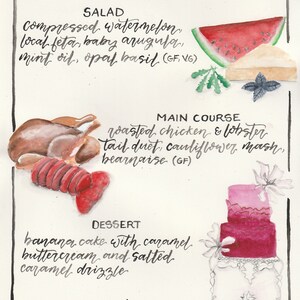 SALAD
compressed watermelon,
local feta, baby arugula,
mint oil, opal basil (GF, VG)
MAIN COURSE
roasted chicken & lobster
tail duet, cauliflower mash,
bearnaise (GF)
DESSERT
banana cake with caramel
buttercream and salted
caramel drizzle